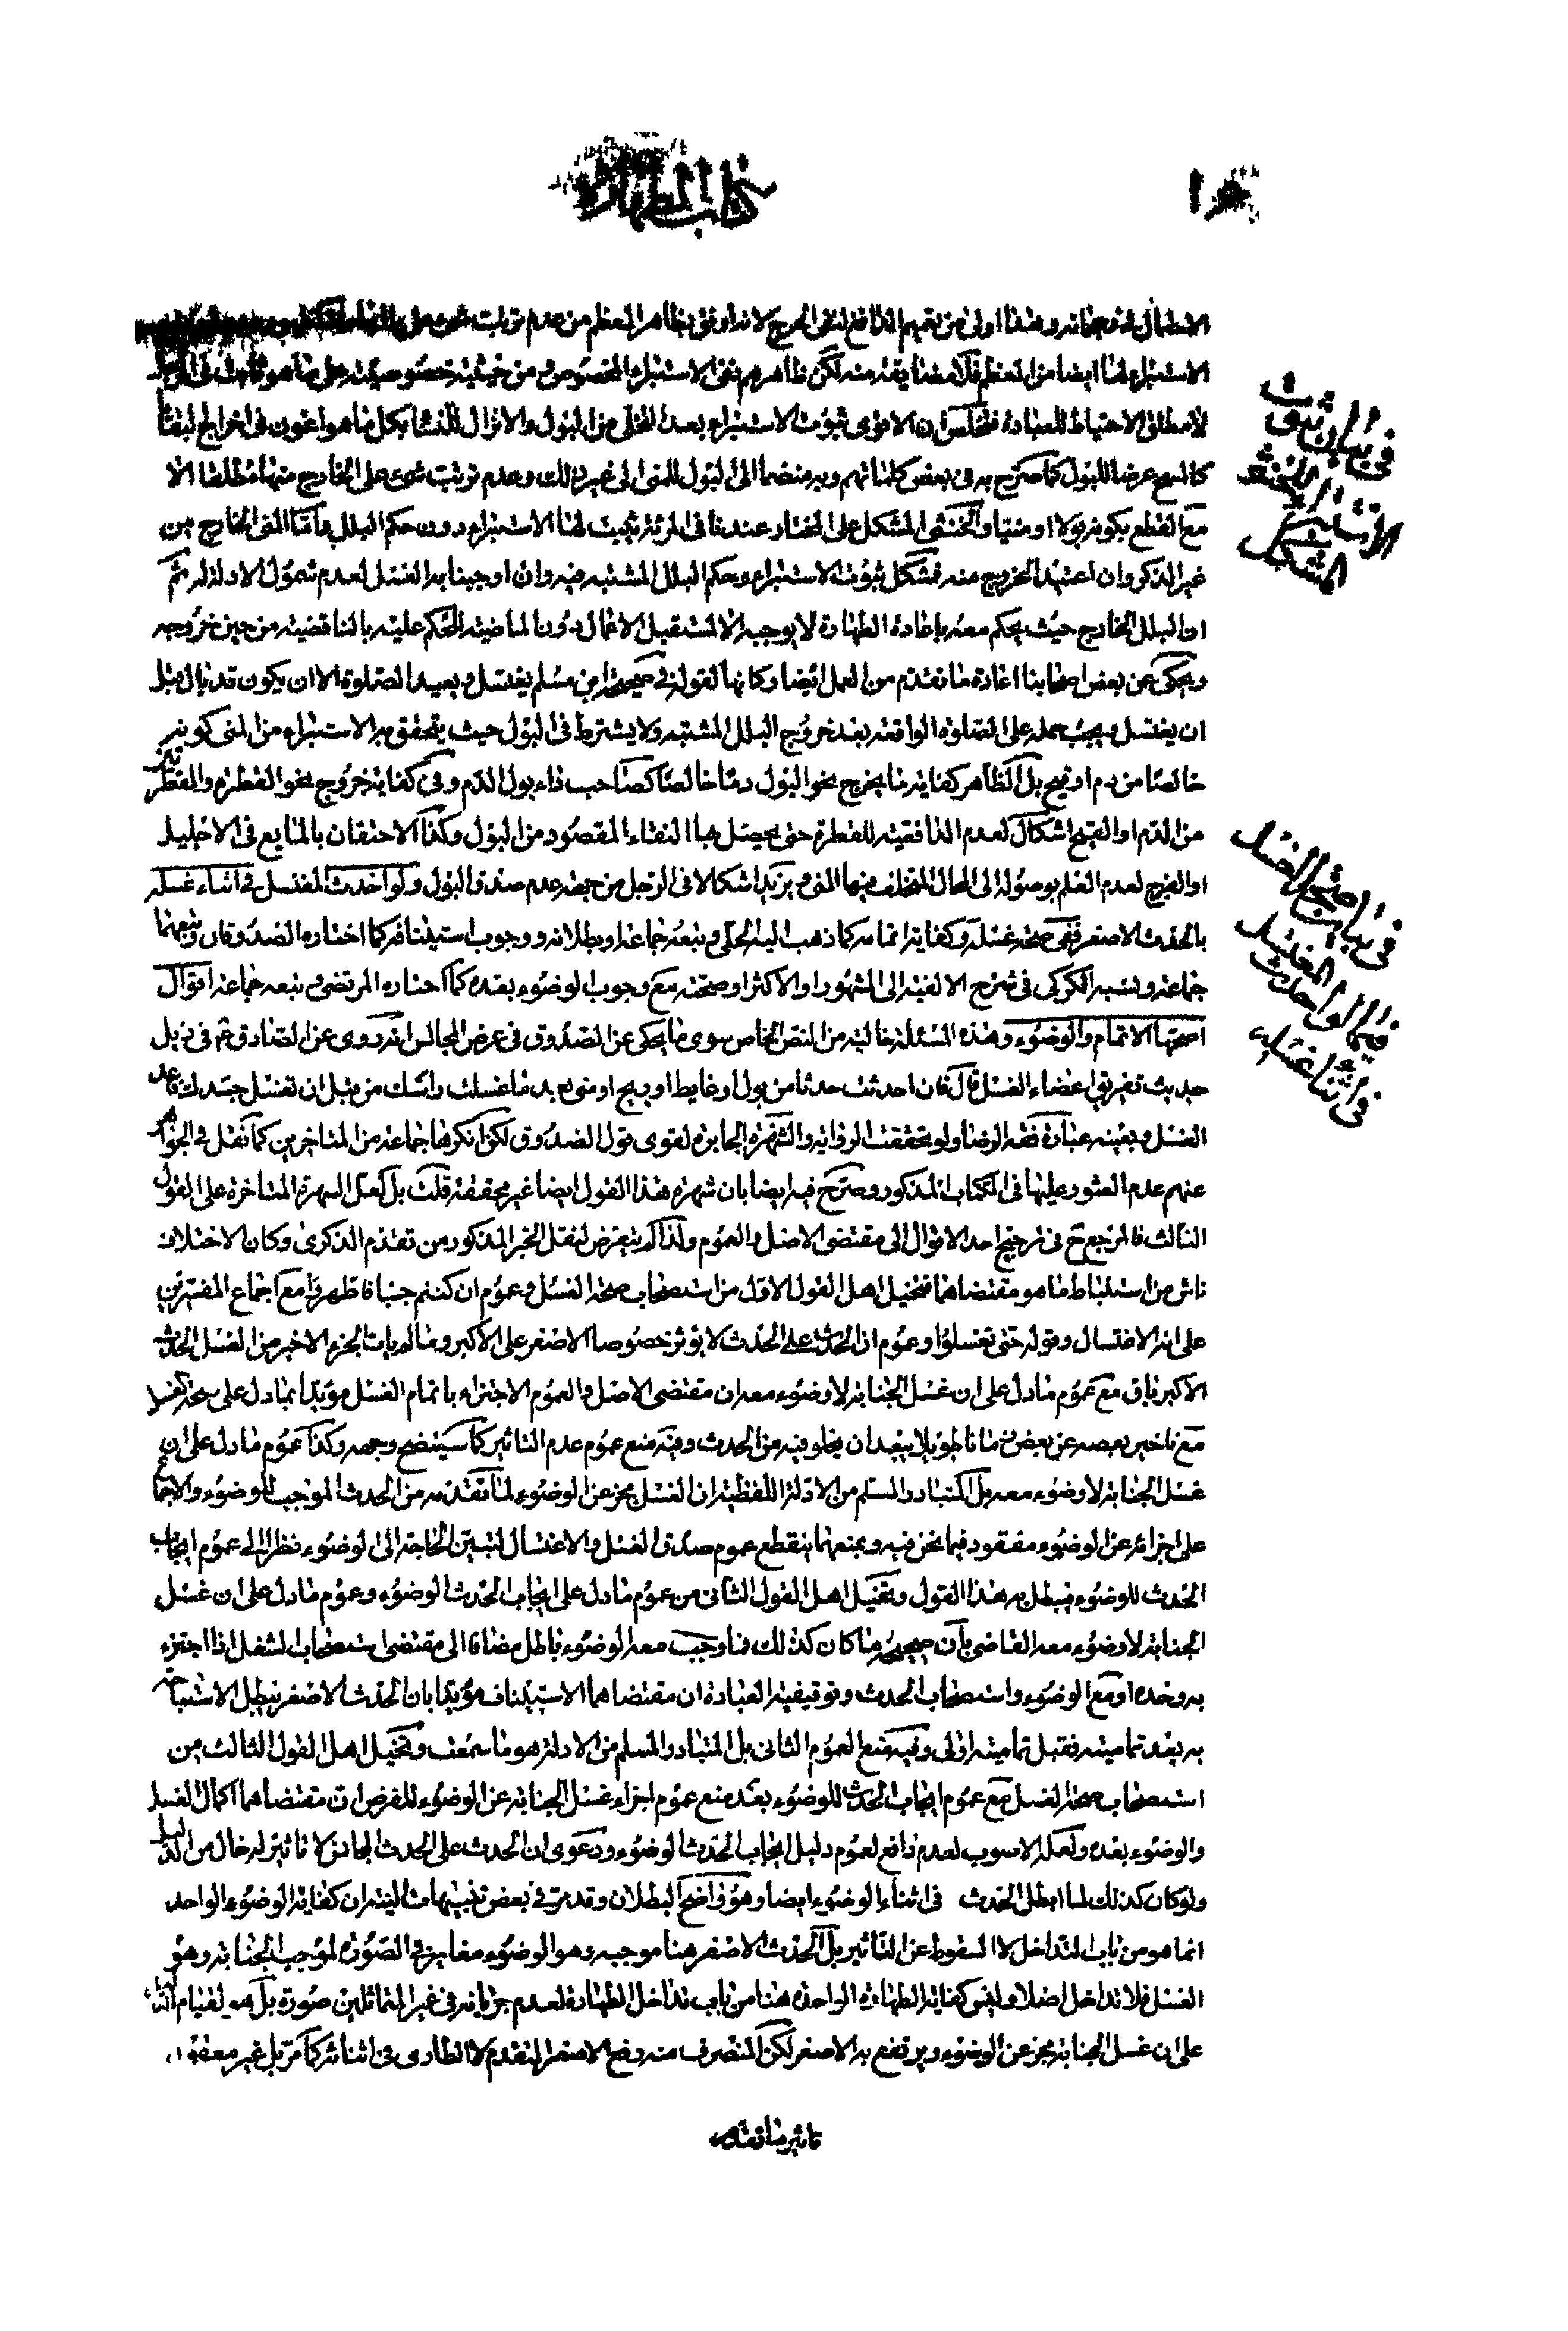 كتاب الطهارة
الاستبراء لها ايضا من المعظم فلا مضايقة منه لكن ظاهرهم نفى الاستبراء المخصوص من حيثية خصوصيته على ما هو ثابت فى الرجل
لا مطلق الاحتياط للعبادة فتخلص ان الاقوى ثبوت الاستبراء بعد التخلى من البول والانزال للنساء بكل ما هو اعون فى اخراج البقايا
عرضا للبول كما صرح به فى بعض كلماتهم وبه منضما الى البول للمنى الى غير ذلك وعدم ترتيب شىء على الخارج منها مطلقا الا
مع القطع بكونه بولا او منيا والخنثى المشكل على المختار عندنا فى المرئة تثبت لها الاستبراء دون حكم البلل واما المنى الخارج من
غير الذكر وان اعتيد الخروج منه فمشكل ثبوت الاستبراء وحكم البلل المشتبه فيه وان اوجبنا به الغسل لعدم شمول الادلة له ثم
ان البلل الخارج حيث يحكم معه باعادة الطهارة لا يوجبه الا لمستقبل الاعمال دون الماضية للحكم عليه بالناقضية من حين خروجه
ويحكى عن بعض اصحابنا اعادة ما تقدم من العمل ايضا وكانها لقوله فى صحيحة ابن مسلم يغتسل ويعيد الصلوة الا ان يكون قد بال قبل
ان يغتسل ويجب حمله على الصلوة الواقعة بعد خروج البلل المشتبه ولا يشترط فى البول حيث يتحقق به الاستبراء من المنى كونه
خالصا من دم او قيح بل الظاهر كفاية ما يخرج نحو البول دما خالصا كصاحب داء بول الدم وفى كفاية خروج نحو القطرة والقطرتين
من الدم او القيح اشكال لعدم الدافقية للقطرة حتى يحصل بها النقاء المقصود من البول وكذا الاحتقان بالمايع فى الاحليل
او الفرج لعدم العلم بوصوله الى المحال المتخلف فيها المنى ويزيد اشكالا فى الرجل من جهة عدم صدق البول ولو احدث المغتسل فى اثناء غسله
بالحدث الاصغر ففى صحة غسله وكفاية اتمامه كما ذهب اليه الحلى وتبعه جماعة او بطلانه ووجوب استينافه كما اختاره الصدوقان وتبعهما
جماعة ونسبه الكركى فى شرح الالفية الى المشهور او الاكثر او صحته مع وجوب الوضوء بعده كما اختاره المرتضى وتبعه جماعة اقوال
اصحها الاتمام والوضوء وهذه المسئلة خالية من النص الخاص سوى ما يحكى عن الصدوق فى عرض المجالس انه روى عن الصادق ع فى ذيل
حديث تفريق اعضاء الغسل قال فان احدثت حدثا من بول او غايط او ريح او منى بعد ما غسلت راسك من قبل ان تغسل جسدك فاعد
الغسل وبعينه عبارة فقه الرضا ولو تحققت الرواية والشهرة الجابرة لقوى قول الصدوق لكن انكرها جماعة من المتاخرين كما نقل فى الجواهر
عنهم عدم العثور عليها فى الكتاب المذكور وصرح فيه ايضا بان شهرة هذا القول ايضا غير محققة قلت بل لعل الشهرة المتاخرة على القول
الثالث فالمرجع ح فى ترجيح احد الاقوال الى مقتضى الاصل والعموم ولذا لم يتعرض لنقل الخبر المذكور من تقدم الذكرى وكان الاختلاف
ناش من استنباط ما هو مقتضاهما فتخيل اهل القول الاول من استصحاب صحة الغسل وعموم ان كنتم جنبا فاطهروا مع اجماع المفسرين
على انه الاغتسال وقوله حتى تغسلوا وعموم ان الحدث على الحدث لا يؤثر خصوصا الاصغر على الاكبر وما لم يات بالجزء الاخير من الغسل الحدث
الاكبر باق مع عموم ما دل على ان غسل الجنابة لا وضوء معه ان مقتضى الاصل والعموم الاجتزاء باتمام الغسل مؤيدا بما دل على صحة الغسل
مع تاخير بعضه عن بعض زمانا طويلا يبعد ان يخلو فيه من الحدث وفيه منع عموم عدم التاثير كما سيتضح وجهه وكذا عموم ما دل على ان
غسل الجنابة لا وضوء معه بل المتبادر والمسلم من الادلة اللفظية ان الغسل مجز عن الوضوء لما تقدمه من الحدث الموجب للوضوء والاجماع
على اجزائه عن الوضوء مفقود فيما نحن فيه وبمنعهما ينقطع عموم صدق الغسل والاغتسال لتبين الحاجة الى الوضوء نظرا الى عموم ايجاب
الحدث للوضوء فيبطل به هذا القول وتخيل اهل القول الثانى من عموم ما دل على ايجاب الحدث الوضوء وعموم ما دل على ان غسل
الجنابة لا وضوء معه القاضى بان صحيحه ما كان كذلك فما وجب معه الوضوء باطل مضافا الى مقتضى استصحاب الشغل اذا اجتزء
به وحده او مع الوضوء واستصحاب الحدث وتوقيفية العبادة ان مقتضاهما الاستيناف مؤيدا بان الحدث الاصغر يبطل الاستباحة
به بعد تماميته فقبل تماميته اولى وفيه منع العموم الثانى بل المتبادر والمسلم من الادلة هو ما سمعت وتخيل اهل القول الثالث من
استصحاب صحة الغسل مع عموم ايجاب الحدث للوضوء بعد منع عموم اجزاء غسل الجنابة عن الوضوء للفرض ان مقتضاهما اكمال الغسل
والوضوء بعده ولعله الاصوب لعدم دافع لعموم دليل ايجاب الحدث الوضوء ودعوى ان الحدث على الحدث المجانس لا تاثير له خال من الدليل
ولو كان كذلك لما ابطل الحدث فى اثناء الوضوء ايضا وهو واضح البطلان وقد مر فى بعض تنبيهات النية ان كفاية الوضوء الواحد
انما هو من باب التداخل لا السقوط عن التاثير بل الحدث الاصغر هنا موجبه وهو الوضوء مغاير فى الصورة لموجب الجنابة وهو
الغسل فلا تداخل اصلا وليس كفاية الطهارة الواحدة هنا من باب تداخل الطهارة لعدم جريانه فى غير المتماثلين صورة بل هو لقيام الدليل
على ان غسل الجنابة مجز عن الوضوء ويرتفع به الاصغر لكن المنصرف منه رفع الاصغر المتقدم لا الطارى فى اثنائه كما مر بل غير معقول
تاثير ما تقدم
فى بيان
فى بيان
فيما لو احدث
المغتسل
فى اثناء غسله